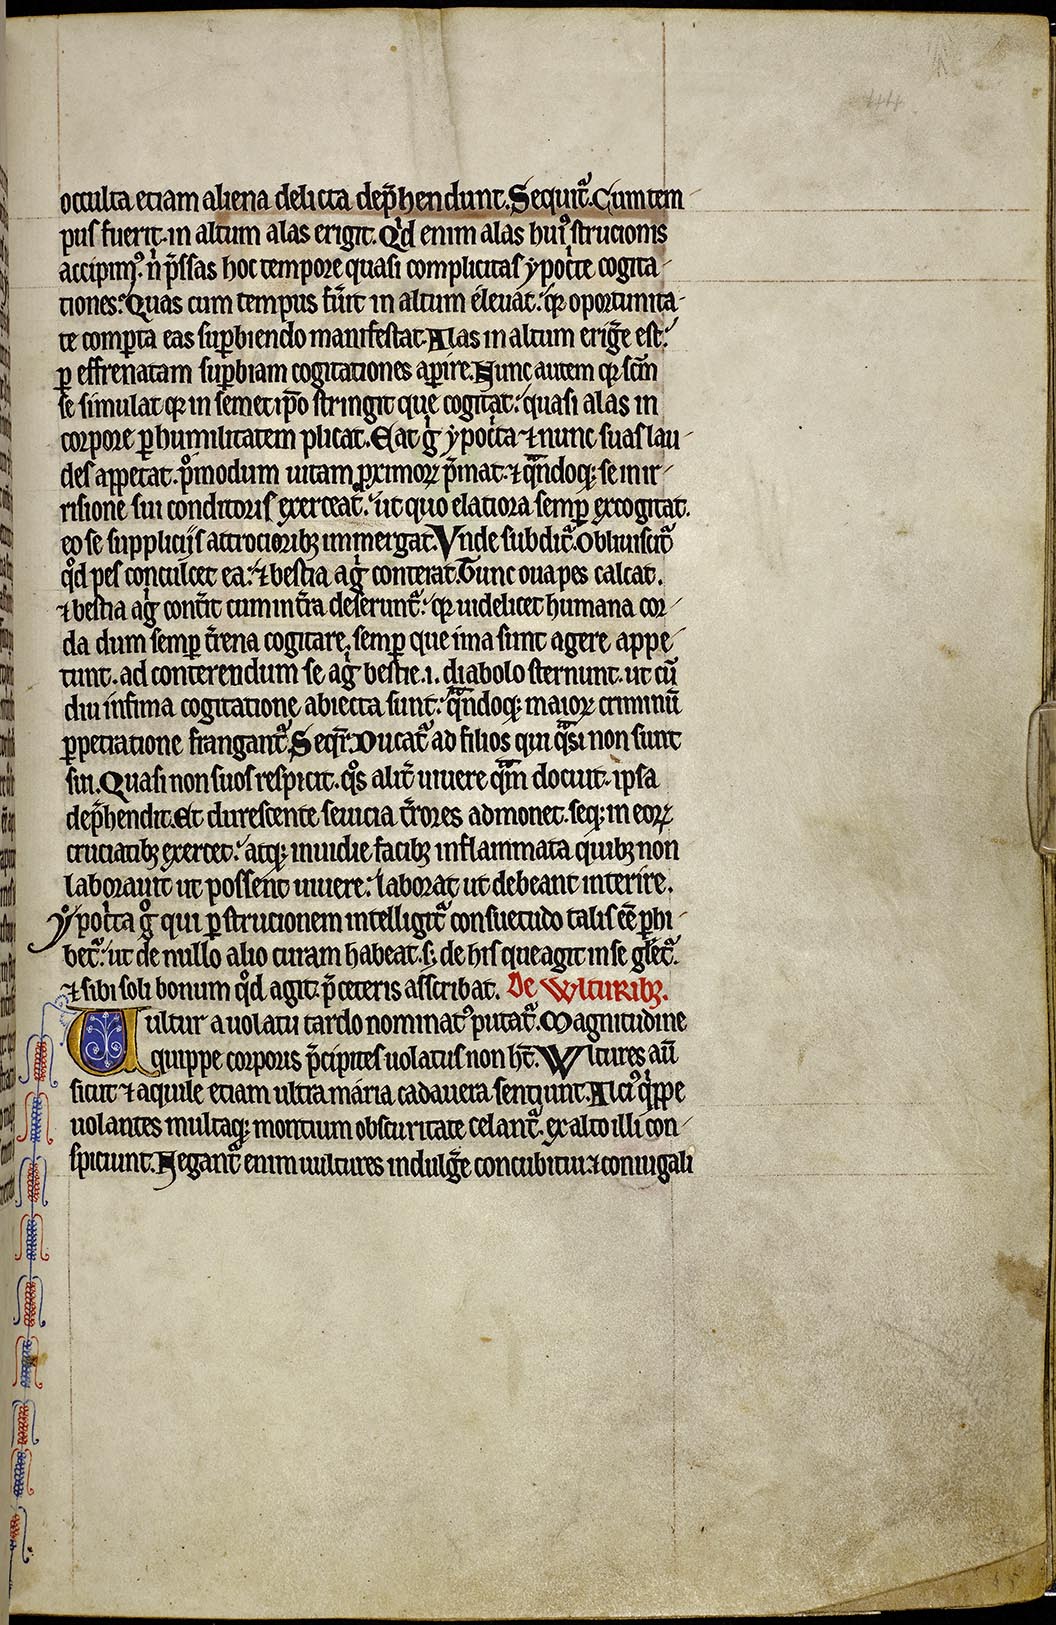 44
occulta etiam aliena delicta dep̃hendunt. Sequit᷑. Cum tem
pus fuerit. in altum alas erigit. Qͥd enim alas huiꝰ strucionis
accipimꝰ. nͥ p̃ssas hoc tempore quasi complicitas ypocͥte cogita
tiones. Quas cum tempus fũit in altum eleuat. qꝛ oportunita
te comꝑta eas suꝑbiendo manifestat. Alas in altum erig̃e est.
ꝑ effrenatam suꝑbiam cogitationes aꝑire. Nunc autem qꝛ scm̃
se simulat qꝛ in semet ip̃o stringit que cogitat. quasi alas in
corpore ꝑ humilitatem plicat. Eat gͥ ypocͥta ⁊ nunc suas lau
des appetat. pͦmodum uitam ꝓximoꝝ p̃mat. ⁊ qᷓndoqꝫ se in ir
risione sui conditoris exerceat᷑. ut quo elatiora semꝑ excogitat.
eo se suppliciis atrocioribꝫ immergat. Vnde subdit᷑. Obliuiscit᷑
qͦd pes conculcet ea. ⁊ bestia agͥ conterat. Tunc oua pes calcat.
⁊ bestia agͥ cont̃it cum in t̃ra deserunt᷑. qꝛ uidelicet humana cor
da dum semꝑ t̃rena cogitare, semꝑ que ima sunt agere appe
tunt. ad conterendum se agͥ bestie .i. diabolo sternunt. ut cũ
diu infima cogitatione abiecta sunt. qᷓndoqꝫ maioꝝ criminũ
ꝑpetratione frangant᷑. Seqr̃. Ducat᷑ ad filios qui qᷓsi non sunt
sui. Quasi non suos respicit. qͦs alit̃ uiuere qᷓm docuit. ipsa
dep̃hendit. Et durescente seuicia t̃rores admonet. seqꝫ in eoꝝ
cruciatibꝫ exercet. atqꝫ inuidie facibꝫ inflammata quibꝫ non
laborauit ut possent uiuere. laborat ut debeant interire.
Ypocͥta gͦ qui ꝑ strucionem intelligit᷑ consuetudo talis eẽ ꝑhi
bet᷑. ut de nullo alio curam habeat. sꝫ de his que agit in se gl̃et᷑.
⁊ sibi soli bonum qͦd agit. p̃ ceteris asscribat. De Wlturibꝫ.
Vultur a uolatu tardo nominatꝰ putat᷑. Magnitudine
quippe corporis p̃cipites uolatus non ht̃. Wltures aũ
sicut ⁊ aquile etiam ultra maria cadauera sentiunt. Alciꝰ qͥppe
uolantes multaqꝫ montium obscuritate celant᷑. ex alto illi con
spiciunt. Negant᷑ enim uultures indulg̃e concubitui ⁊ coniugali